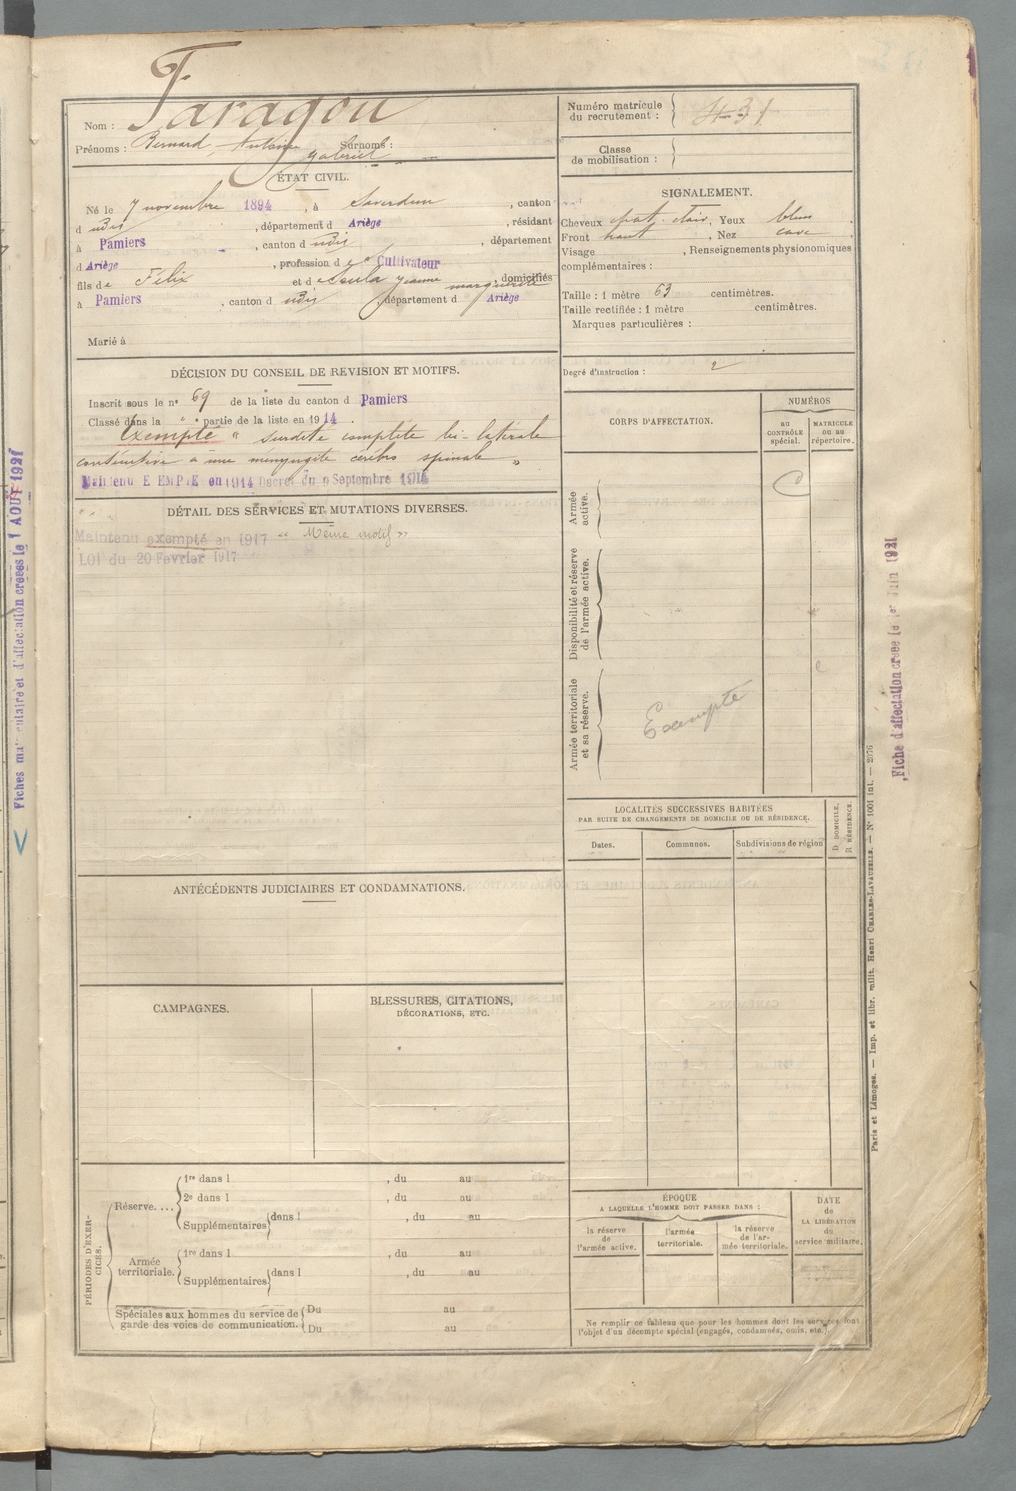 Nom : Faragou
Prénoms : Bernard, Antoine Surnoms :
Gabriel
Numéro matricule
du recrutement : 431
Classe
de mobilisation :
ÉTAT CIVIL.
Né le 7 novembre 1894, à Saverdun, canton
d udis, département d Ariège, résidant
à Pamiers, canton d udis, département
d Ariège, profession de Cultivateur
fils de Félix et de Jeanne marguerite, domiciliés
à Pamiers, canton d udis, département d Ariège
Marié à
SIGNALEMENT.
Cheveux chat. clair, Yeux bleus
Front haut, Nez cave
Visage , Renseignements physionomiques
complémentaires :
Taille : 1 mètre 63 centimètres.
Taille rectifiée : 1 mètre centimètres.
Marques particulières :
Degré d'instruction : 2
DÉCISION DU CONSEIL DE REVISION ET MOTIFS.
Inscrit sous le nº 69 de la liste du canton d Pamiers
Classé dans la " partie de la liste en 1914.
Exempté " surdité complète bi-latérale
consécutive à une méningite cérébro spinale "
Maintenu E EMP E en 1914 Décret du 9 Septembre 1914
DÉTAIL DES SERVICES ET MUTATIONS DIVERSES.
Maintenu exempté en 1917 « Même motif »
LOI du 20 Février 1917
CORPS D'AFFECTATION.
NUMÉROS
AU
CONTRÔLE
spécial.
MATRICULE
OU AU
répertoire.
Armée
active.
Disponibilité et réserve
de l'armée active.
Armée territoriale
et sa réserve.
Exempté
LOCALITÉS SUCCESSIVES HABITÉES
PAR SUITE DE CHANGEMENTS DE DOMICILE OU DE RÉSIDENCE.
Dates.
Communes.
Subdivisions de région
D. DOMICILE.
R. RÉSIDENCE.
ANTÉCÉDENTS JUDICIAIRES ET CONDAMNATIONS.
CAMPAGNES.
BLESSURES, CITATIONS,
DÉCORATIONS, ETC.
PÉRIODES D'EXER-
CICES.
Réserve....
1re dans l , du au
2e dans l , du au
Supplémentaires dans l , du au
Armée
territoriale.
1re dans l , du au
Supplémentaires dans l , du au
Spéciales aux hommes du service de
garde des voies de communication.
Du au
Du au
ÉPOQUE
A LAQUELLE L'HOMME DOIT PASSER DANS :
la réserve
de
l'armée active.
l'armée
territoriale.
la réserve
de l'ar-
mée territoriale.
DATE
de
LA LIBÉRATION
du
service militaire.
Ne remplir ce tableau que pour les hommes dont les services font
l'objet d'un décompte spécial (engagés, condamnés, omis, etc.).
Paris et Limoges. — Imp. et libr. milit. Henri CHARLES-LAVAUZELLE. — Nº 1001 int. — 2076
Fiche d'affectation créée le 1er Juin 1921
Fiches matriculaire et d'affectation créées le 1 AOUT 1921